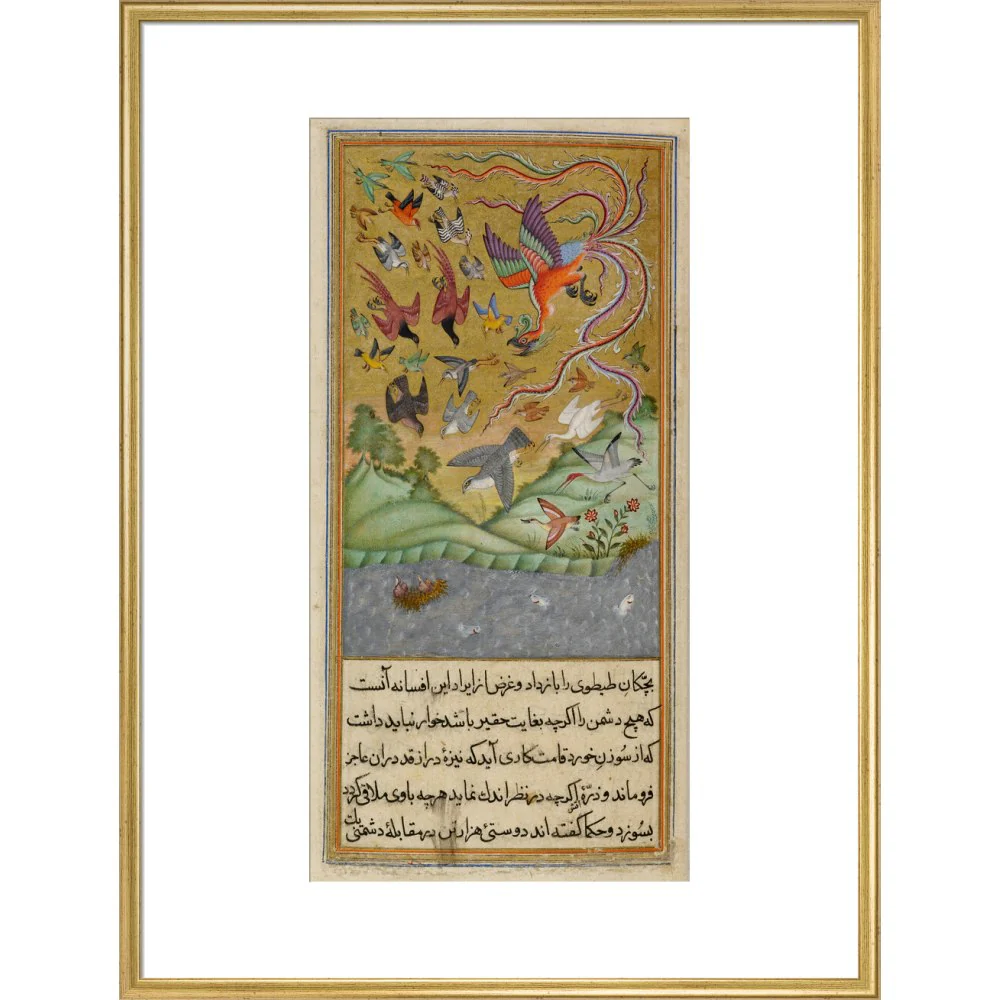 بچکان طیطوی را باز داد و غرض از ایراد این افسانه آنست
که هیچ دشمن را اگرچه بغایت حقیر باشد خوار نباید داشت
که از سوزن خورد قامت کاری آید که نیزهٔ دراز قد دران عاجز
فروماند و ذرّهٔ آتش اگرچه در نظر اندك نماید هرچه باوی ملاقی گردد
بسوزد و حکما گفته اند دوستیٔ هزار تن در مقابلهٔ دشمنی یك